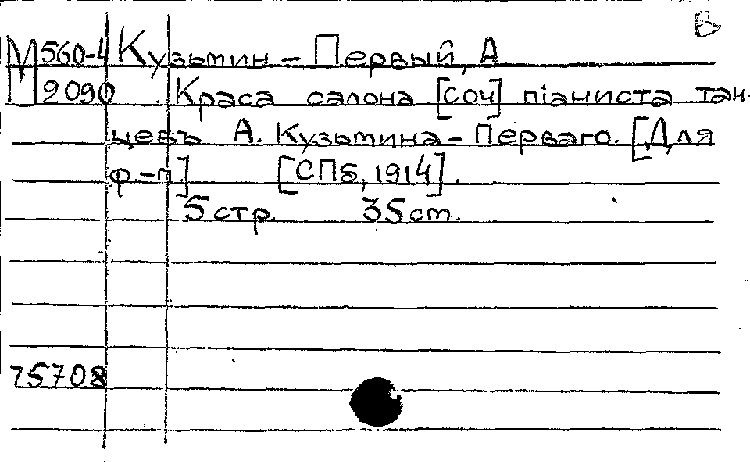 В
М 560-4 Кузьмин - Первый, А
П 2090 Краса салона [соч] піаниста тан-
цевъ А. Кузьмина - Перваго. [Для
ф-п] [СПб, 1914].
5 стр. 35 cm.
75708